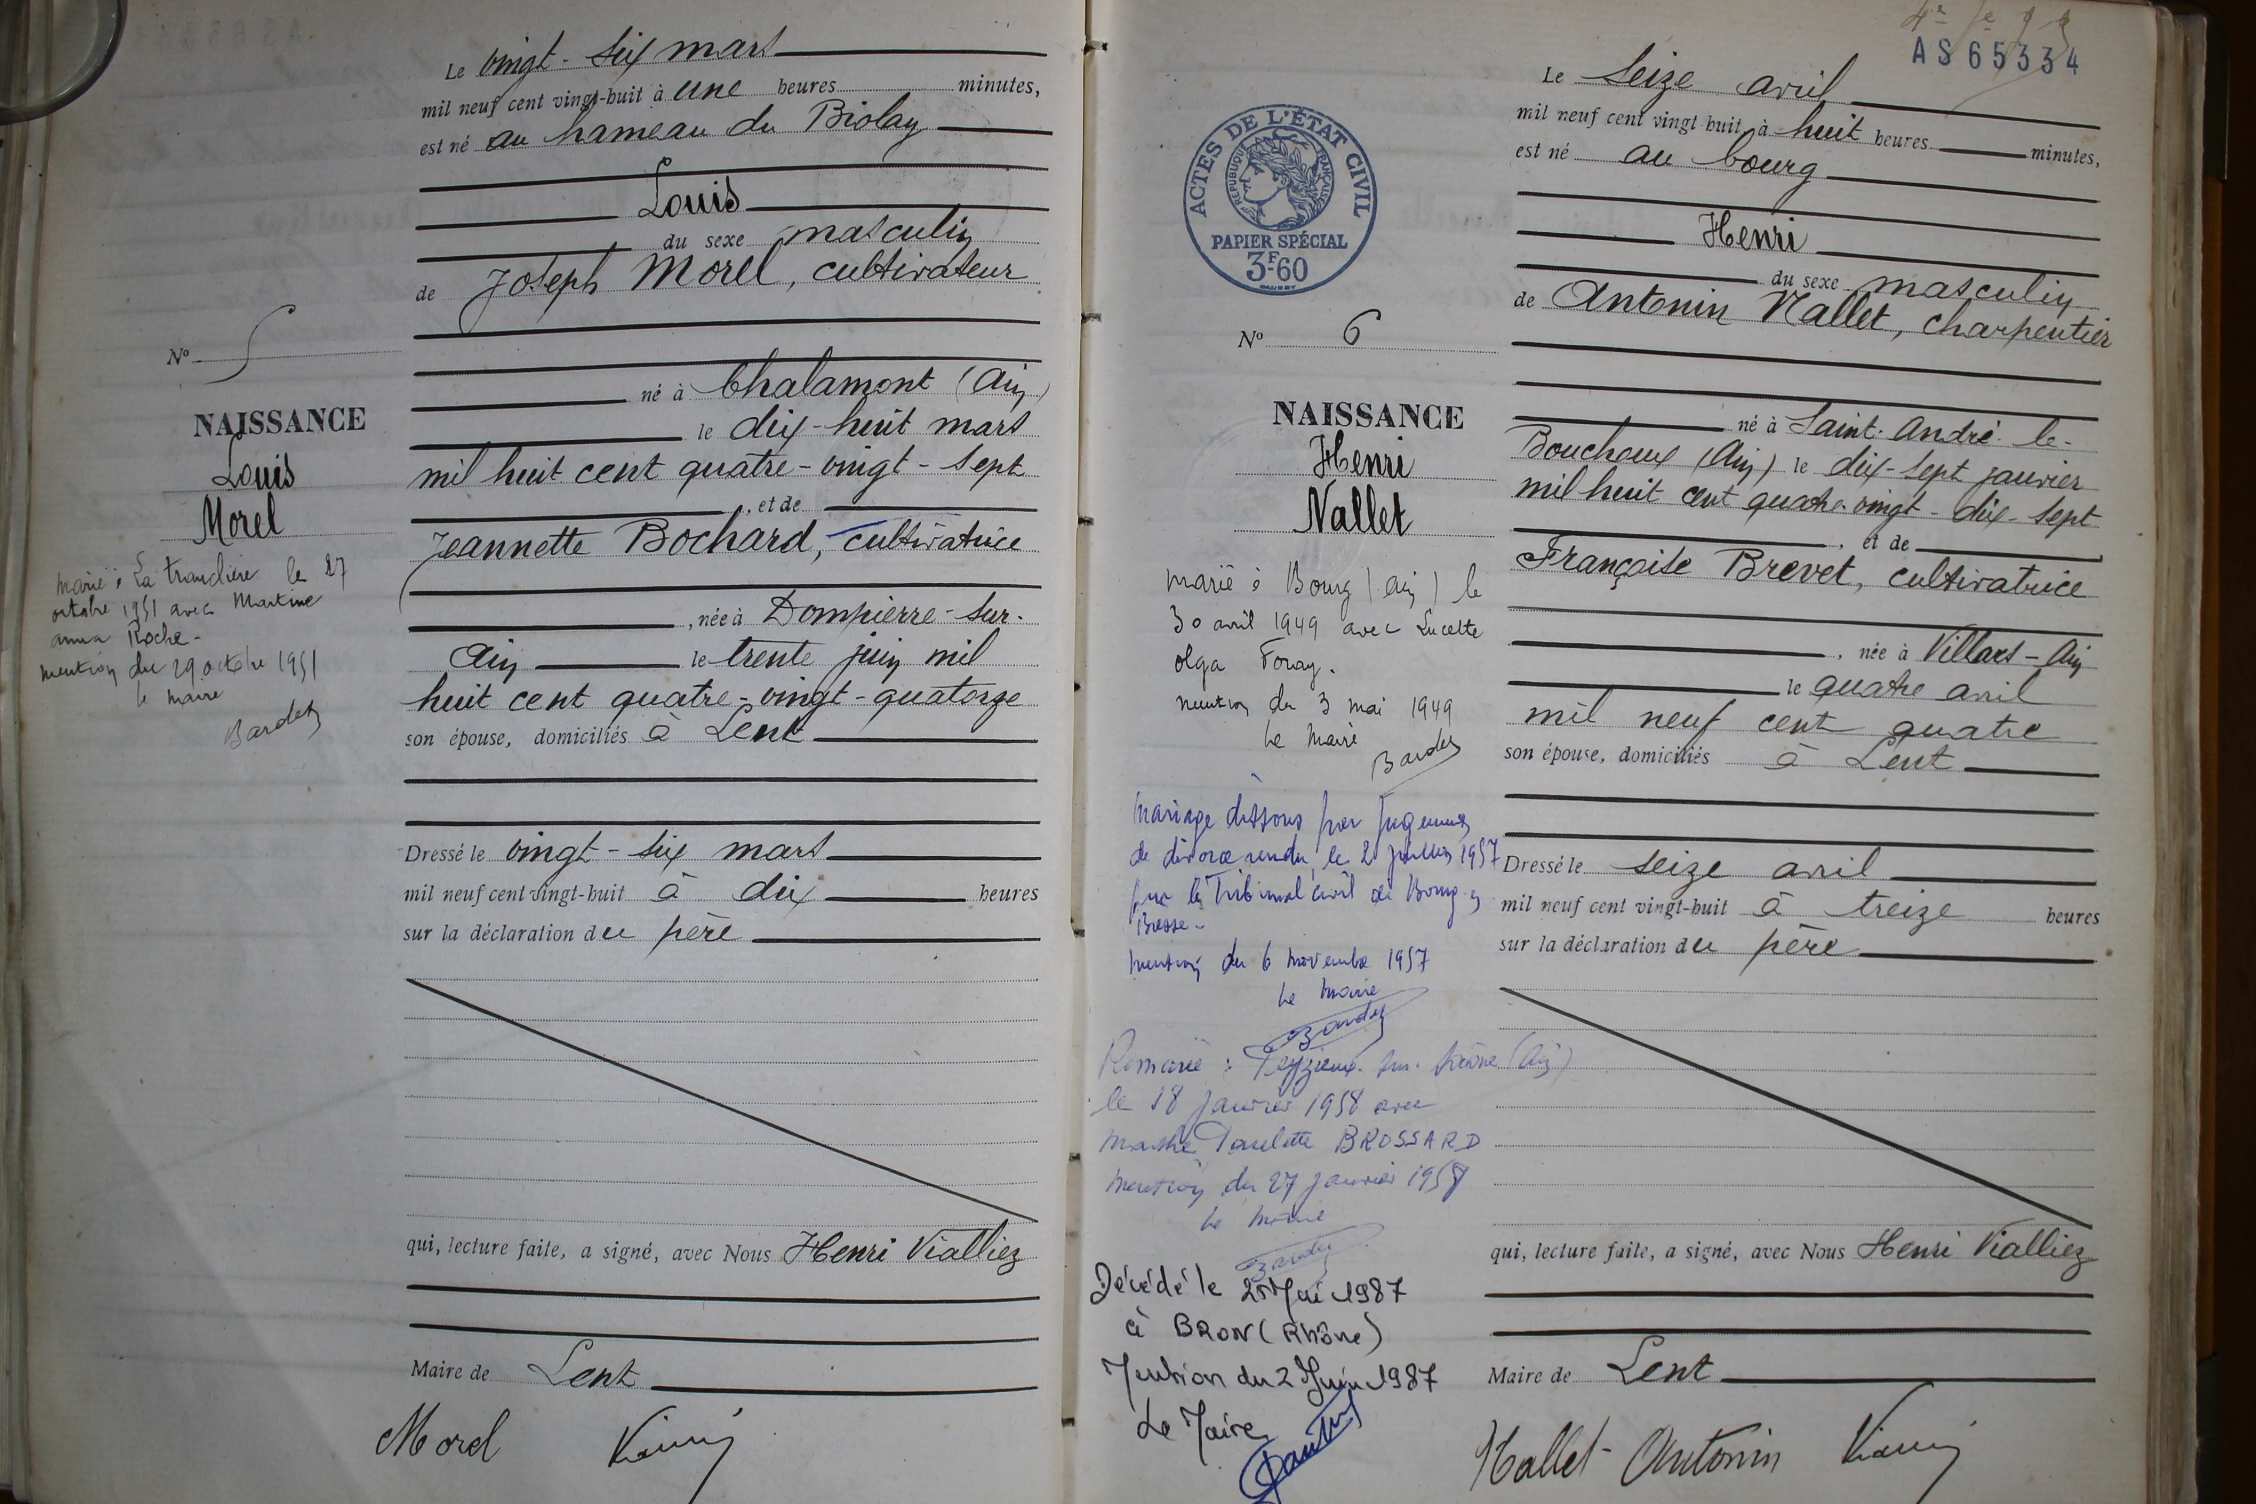 Le vingt-six mars
mil neuf cent vingt-huit à une heures minutes,
est né au hameau du Biolay
Louis
du sexe masculin
de Joseph Morel, cultivateur
né à Chalamont (Ain)
le dix-huit mars
mil huit cent quatre-vingt-sept
, et de
Jeannette Bochard, cultivatrice
, née à Dompierre-sur-
Ain le trente juin mil
huit cent quatre-vingt-quatorze
son épouse, domiciliés à Lent
Dressé le vingt-six mars
mil neuf cent vingt-huit à dix heures
sur la déclaration du père
qui, lecture faite, a signé, avec Nous Henri Vialliez
Maire de Lent
Morel
No 5
NAISSANCE
Louis
Morel
marié à La Tranclière le 27
octobre 1951 avec Martine
anna Roche-
mention du 29 octobre 1951
le maire
AS65334
ACTES DE L'ÉTAT CIVIL
RÉPUBLIQUE FRANÇAISE
PAPIER SPÉCIAL
3F60
No 6
NAISSANCE
Henri
Nallet
marié à Bourg (Ain) le
30 avril 1949 avec Lucette
olga Foray.
mention du 3 mai 1949
Le Maire
Mariage dissous par jugement
de divorce rendu le 2 juillet 1957
par le Tribunal civil de Bourg en
Bresse-
mention du 6 novembre 1957
Le Maire
Remarié à sur (Ain)
le 18 janvier 1958 avec
Marthe Paulette BROSSARD
mention du 27 janvier 1958
Le Maire
Décédé le Mai 1987
à BRON (Rhône)
Mention du 2 Juin 1987
Le Maire
Le Seize avril
mil neuf cent vingt-huit à huit heures minutes,
est né au bourg
Henri
du sexe masculin
de Antonin Nallet, charpentier
né à Saint-André-le-
Bouchoux (Ain) le dix-sept janvier
mil huit cent quatre-vingt-dix-sept
, et de
Françoise Brevet, cultivatrice
, née à Villars-Ain
le quatre avril
mil neuf cent quatre
son épouse, domiciliés à Lent
Dressé le seize avril
mil neuf cent vingt-huit à treize heures
sur la déclaration du père
qui, lecture faite, a signé, avec Nous Henri Vialliez
Maire de Lent
Nallet Antonin